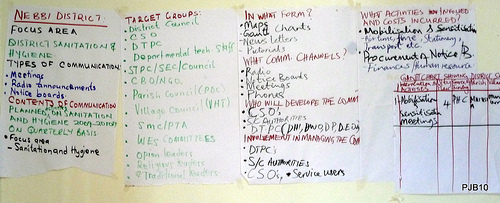 NEBBI DISTRICT
FOCUS AREA
DISTRICT SANITATION &
HYGIENE
TYPES OF COMMUNICATION
• Meetings
• Radio announcements
• Notice boards
CONTENTS OF COMMUNICATION
PLANNED ON SANITATION
AND HYGIENE
ON QUARTERLY BASIS
• Focus area
- Sanitation and Hygiene
TARGET GROUPS:
District Council
CSO
DTPC
Departmental tech. staff
STPC/SEC/Council
CBO/NGO
Parish Council (PDC)
Village Council (VHT)
SMC/PTA
WES COMMITTEES
Opinion leaders
Religious leaders
Traditional leaders
IN WHAT FORM?
• Maps
• Charts
• News Letters
• Pictorials
WHAT COMM. CHANNELS?
• Radio
• Notice Boards
• Meetings
• Phones
WHO WILL DEVELOPE THE COMM
• CSO's
• S/C AUTHORITIES
• DTPC
INVOLVEMENT IN MANAGING THE COM
• DTPC;
• S/C AUTHORITIES
• CSO's, • Service users
WHAT ACTIVITIES INVOLVED
AND COSTS INCURRED?
• Mobilisation & Sensitisation
Air time, fuel, stationery,
transport etc
Procurement of Notice B
Financial/human resource
Mobilisation
sensitisation
meetings
4
PHC
PJB10